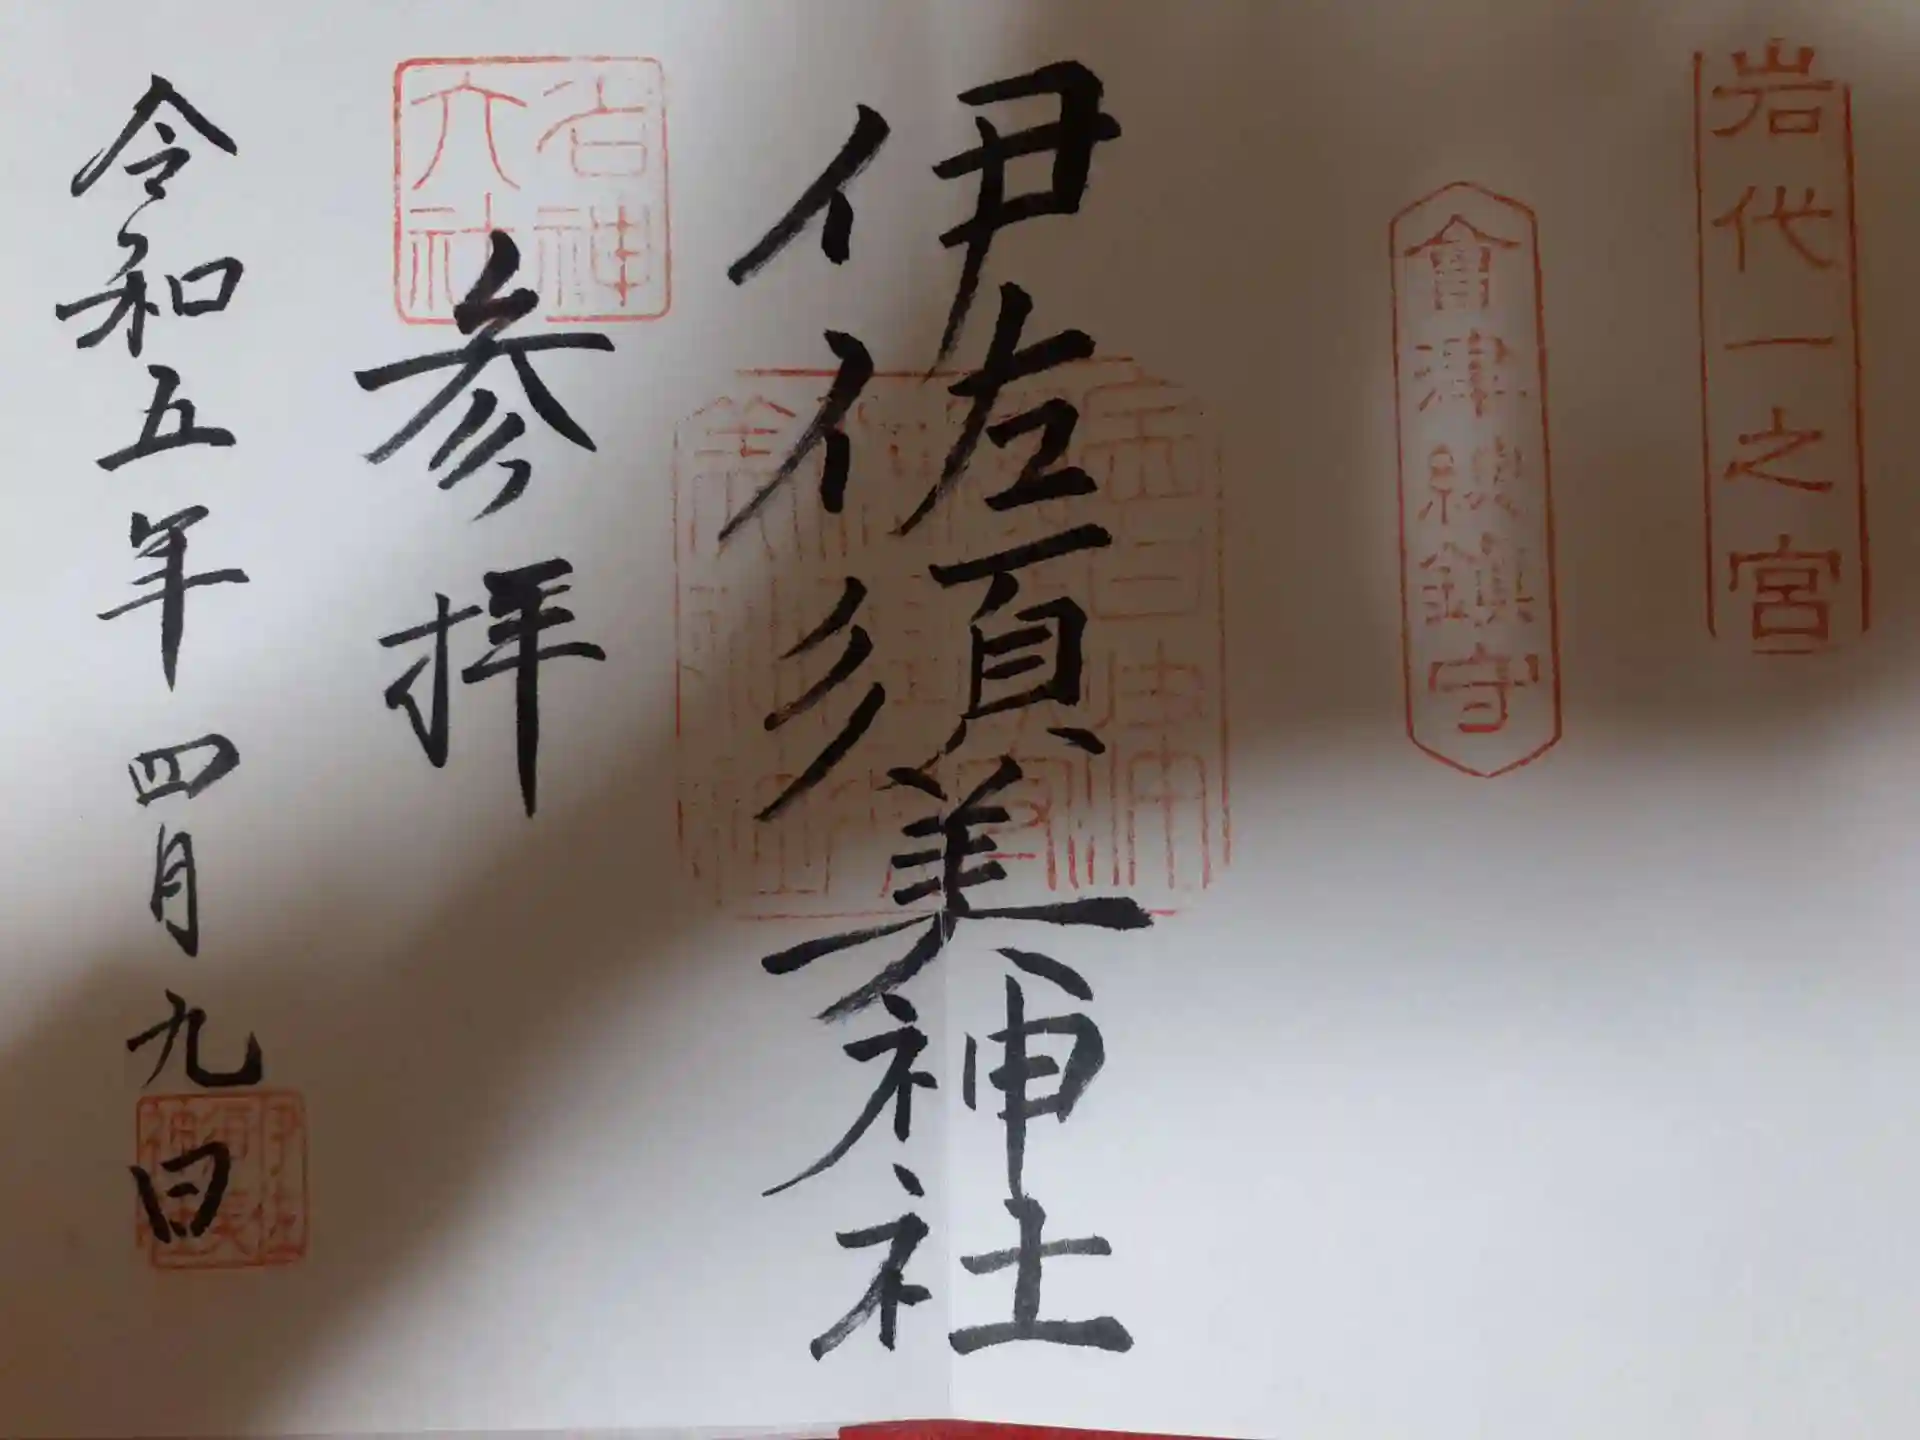 岩代一之宮
會津総鎮守
伊佐須美神社
名神
大社
参拝
令和五年四月九日
伊佐
須美
神社